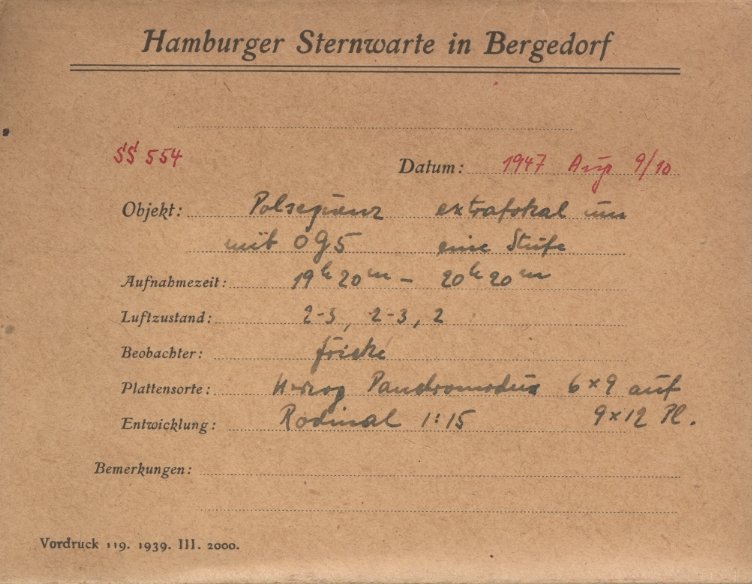 Hamburger Sternwarte in Bergedorf
SS 554 Datum: 1947 Aug 9/10
Objekt: Polsequenz extrafokal um
mit OG5 eine Stufe
Aufnahmezeit: 19h 20m – 20h 20m
Luftzustand: 2-3, 2-3, 2
Beobachter: Fricke
Plattensorte: Herzog 6×9 auf
Entwicklung: Rodinal 1:15 9×12 Pl.
Bemerkungen:
Vordruck 119. 1939. III. 2000.